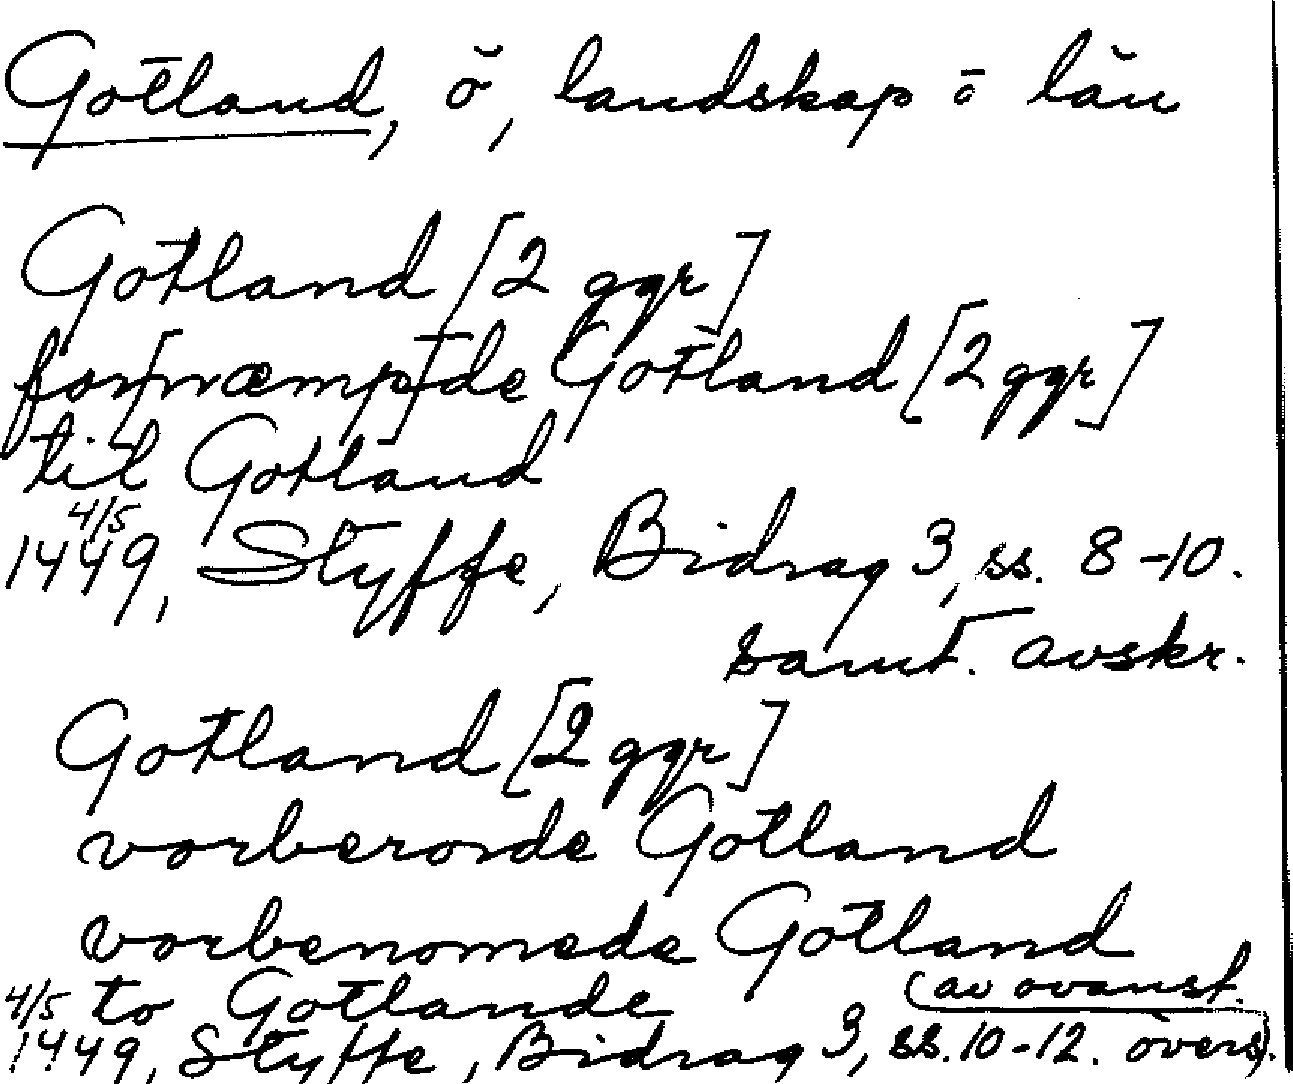 Gotland, ö, landskap o län
Gotland [2 ggr]
for[næmp]de Gotland [2 ggr]
til Gotland
4/5
1449, Styffe, Bidrag 3, ss. 8-10.
samt. avskr.
Gotland [2 ggr]
vorberorde Gotland
vorbenomede Gotland
to Gotlande (av ovanst.
4/5 1449, Styffe, Bidrag 3, ss. 10-12. övers).